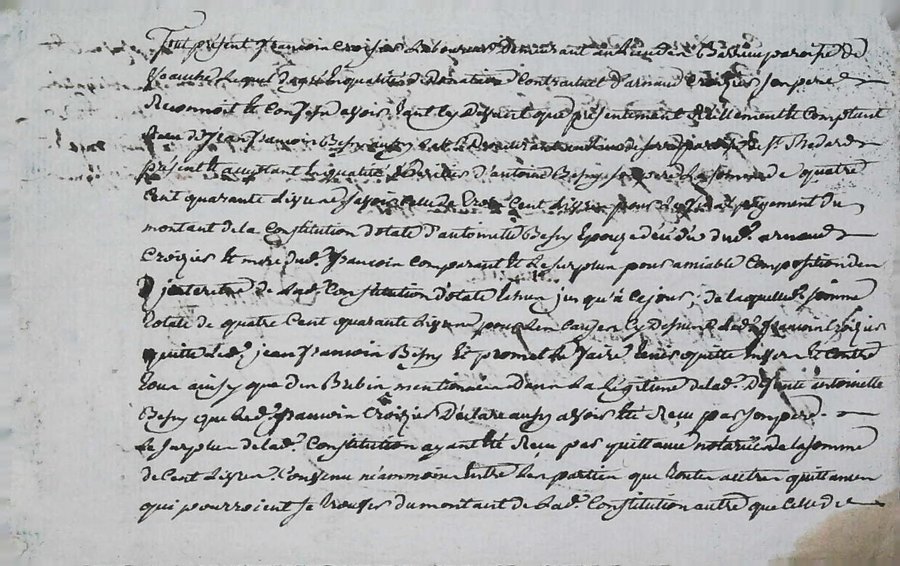 Fut présent françois Croizies Laboureur demeurant au lieu de Barrieu paroisse de
lequel de gré en qualité de donation contractuel d'arnaud Croizies son pere
Reconnoit et Confesse avoir Eant cy devant que présentement Réellement et Comptent
Reeu de Jean françois Bessy aussy de St Medard
présent et acceptant En qualité d'héritier d'antoine Bessy son pere La somme de quatre
Cent quarante Livres savoir celle de trois Cent Livres pour Le payement du
montant de la Constitution dotale d'antoinette Bessy Epouze décédée dud. arnaud
Croizies et mere dud. françois Comparant et Le surplus pour amiable Composition des
jnterets de Lad. Constitution dotale Echus jusqu'à ce jour; de laquelle somme
totale de quatre Cent quarante Livres pour Les Causes cy dessus Led. françois Croizies
quitte Led. jean françois Bessy Et promet Le faire tenir quitte Envers Et Contre
tous ainsy que des mentionnés dans La Légitime de lad. Defunte antoinette
Bessy que Led. françois Croizies Déclare aussy avoir Eté Reçu par son père
Le surplus de lad. Constitution ayant Eté Reçu par quittance notariée de la somme
de Cent Livres. Convenu néammoins Entre Les parties que toutes autres quittances
qui pourroient se trouver du montant de Lad. Constitution autre que Celle de